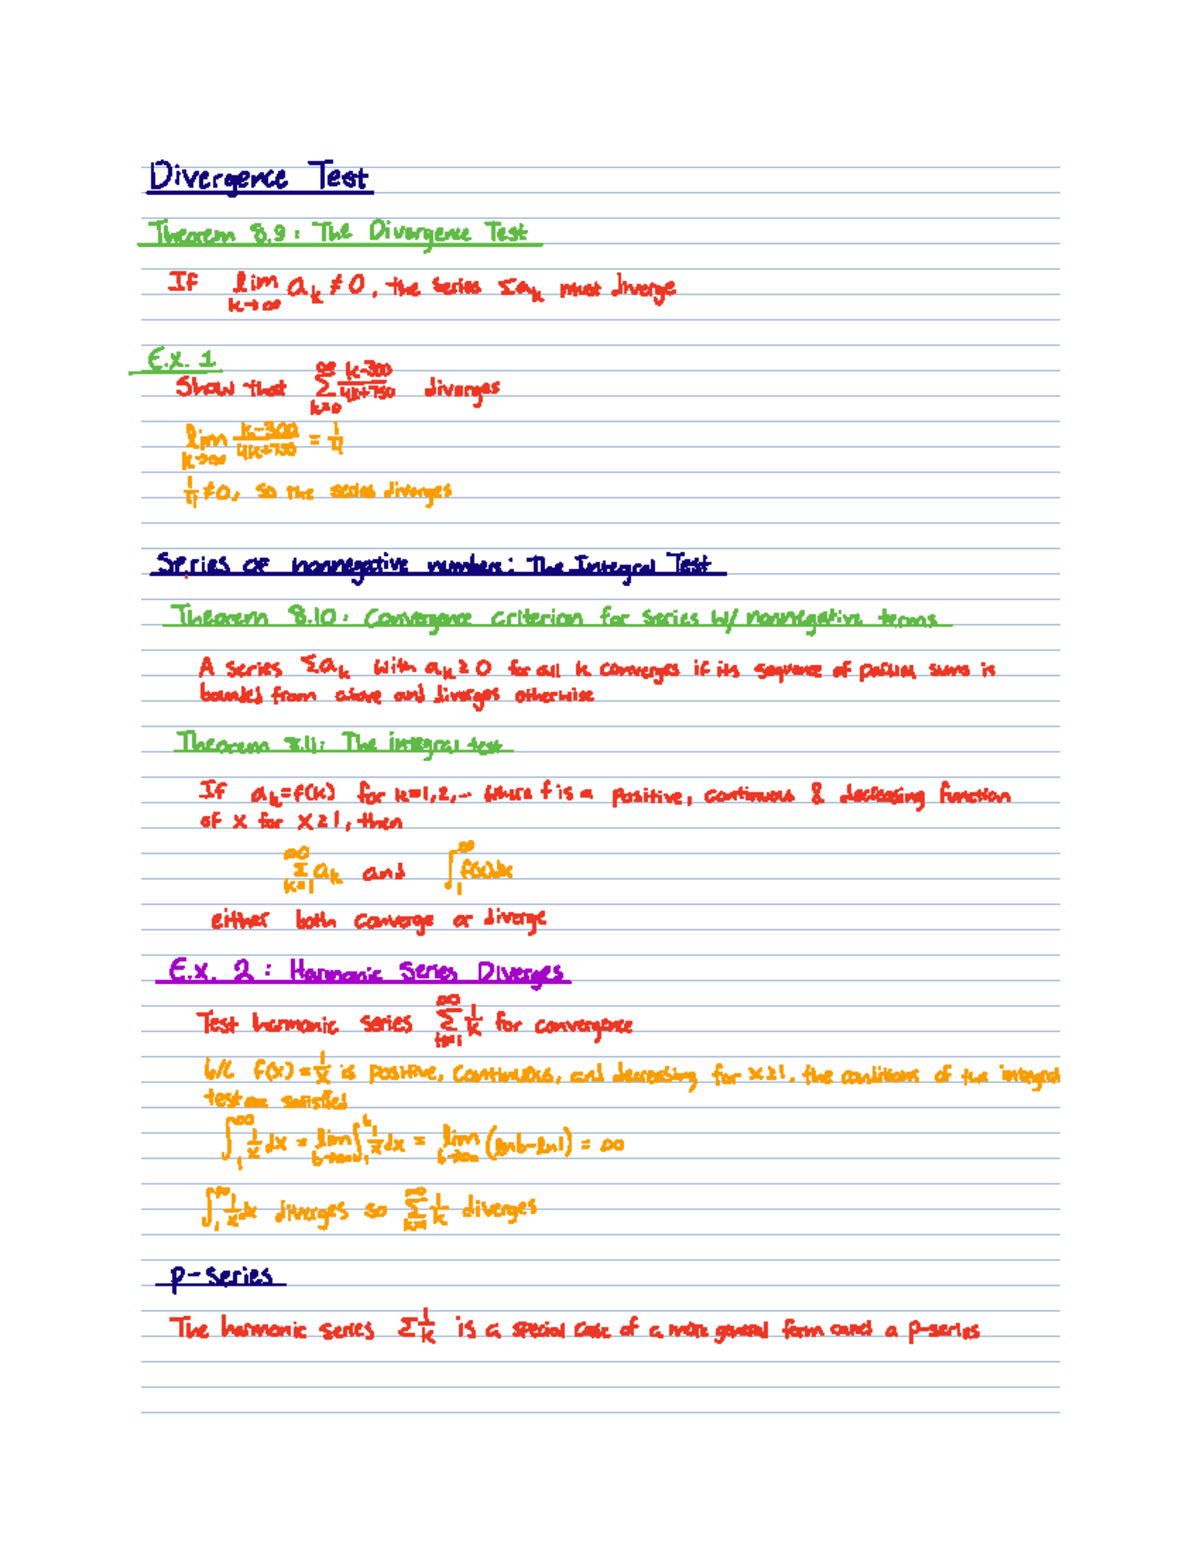 Divergence Test
Theorem 8.9: The Divergence Test
If lim k→∞ aₖ ≠ 0, the series Σaₖ must diverge
E.x. 1
Show that ∞Σk=0 (k-300)/(4k+750) diverges
lim k→∞ (k-300)/(4k+750) = 1/4
1/4 ≠ 0, so the series diverges
Series of nonnegative numbers: The Integral Test
Theorem 8.10: Convergence criterion for series w/ nonnegative terms
A series Σaₖ with aₖ ≥ 0 for all k converges if its sequence of partial sums is
bounded from above and diverges otherwise
Theorem 8.11: The integral test
If aₖ=f(k) for k=1,2,... where f is a positive, continuous & decreasing function
of x for x≥1, then
∞Σk=1 aₖ and ∫₁^∞ f(x)dx
either both converge or diverge
E.x. 2: Harmonic Series Diverges
Test harmonic series ∞Σk=1 1/k for convergence
b/c f(x) = 1/x is positive, continuous, and decreasing for x≥1, the conditions of the integral
test are satisfied
∫₁^∞ 1/x dx = lim b→∞ ∫₁^b 1/x dx = lim b→∞ (lnb-ln1) = ∞
∫₁^∞ 1/x dx diverges so ∞Σk=1 1/k diverges
p-series
The harmonic series Σ1/k is a special case of a more general form a p-series